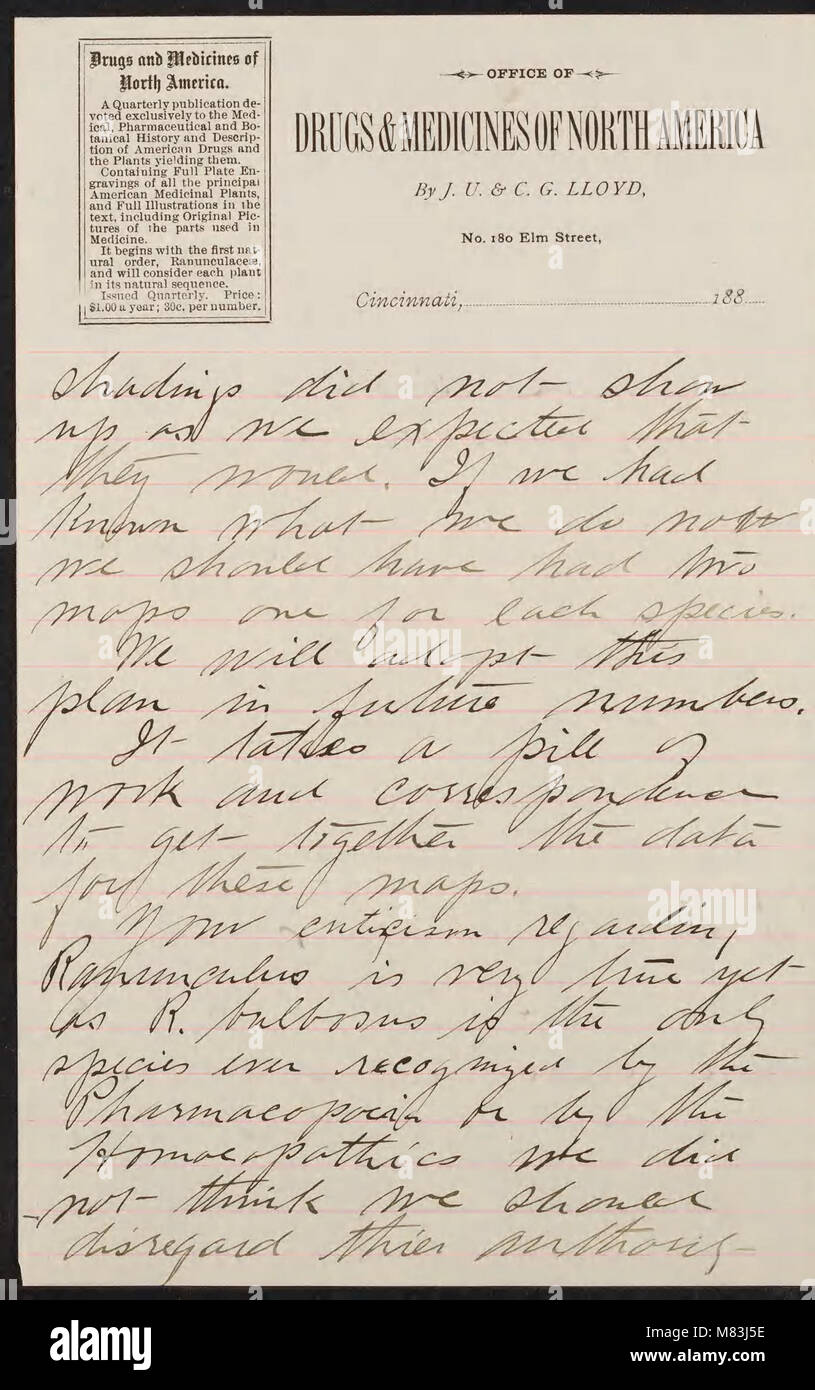 Drugs and Medicines of
North America.
A Quarterly publication de-
voted exclusively to the Med-
ical, Pharmaceutical and Bo-
tanical History and Descrip-
tion of American Drugs and
the Plants yielding them.
Containing Full Plate En-
gravings of all the principal
American Medicinal Plants,
and Full Illustrations in the
text, including Original Pic-
tures of the parts used in
Medicine.
It begins with the first nat-
ural order, Ranunculaceæ,
and will consider each plant
in its natural sequence.
Issued Quarterly. Price:
$1.00 a year; 30c. per number.
OFFICE OF
DRUGS & MEDICINES OF NORTH AMERICA
By J. U. & C. G. LLOYD,
No. 180 Elm Street,
Cincinnati, 188
shadings did not show
up as we expected that
they would. If we had
known what we do now
we should have had two
maps one for each species.
We will adopt this
plan in future numbers.
It takes a pill of
work and correspondence
to get together the data
for these maps.
Your criticism regarding
Ranunculus is very true yet
as R. bulbosus is the only
species ever recognized by the
Pharmacopoeia or by the
Homoeopathics we did
not think we should
disregard thier authority
alamy
Image ID: M83J5E
www.alamy.com